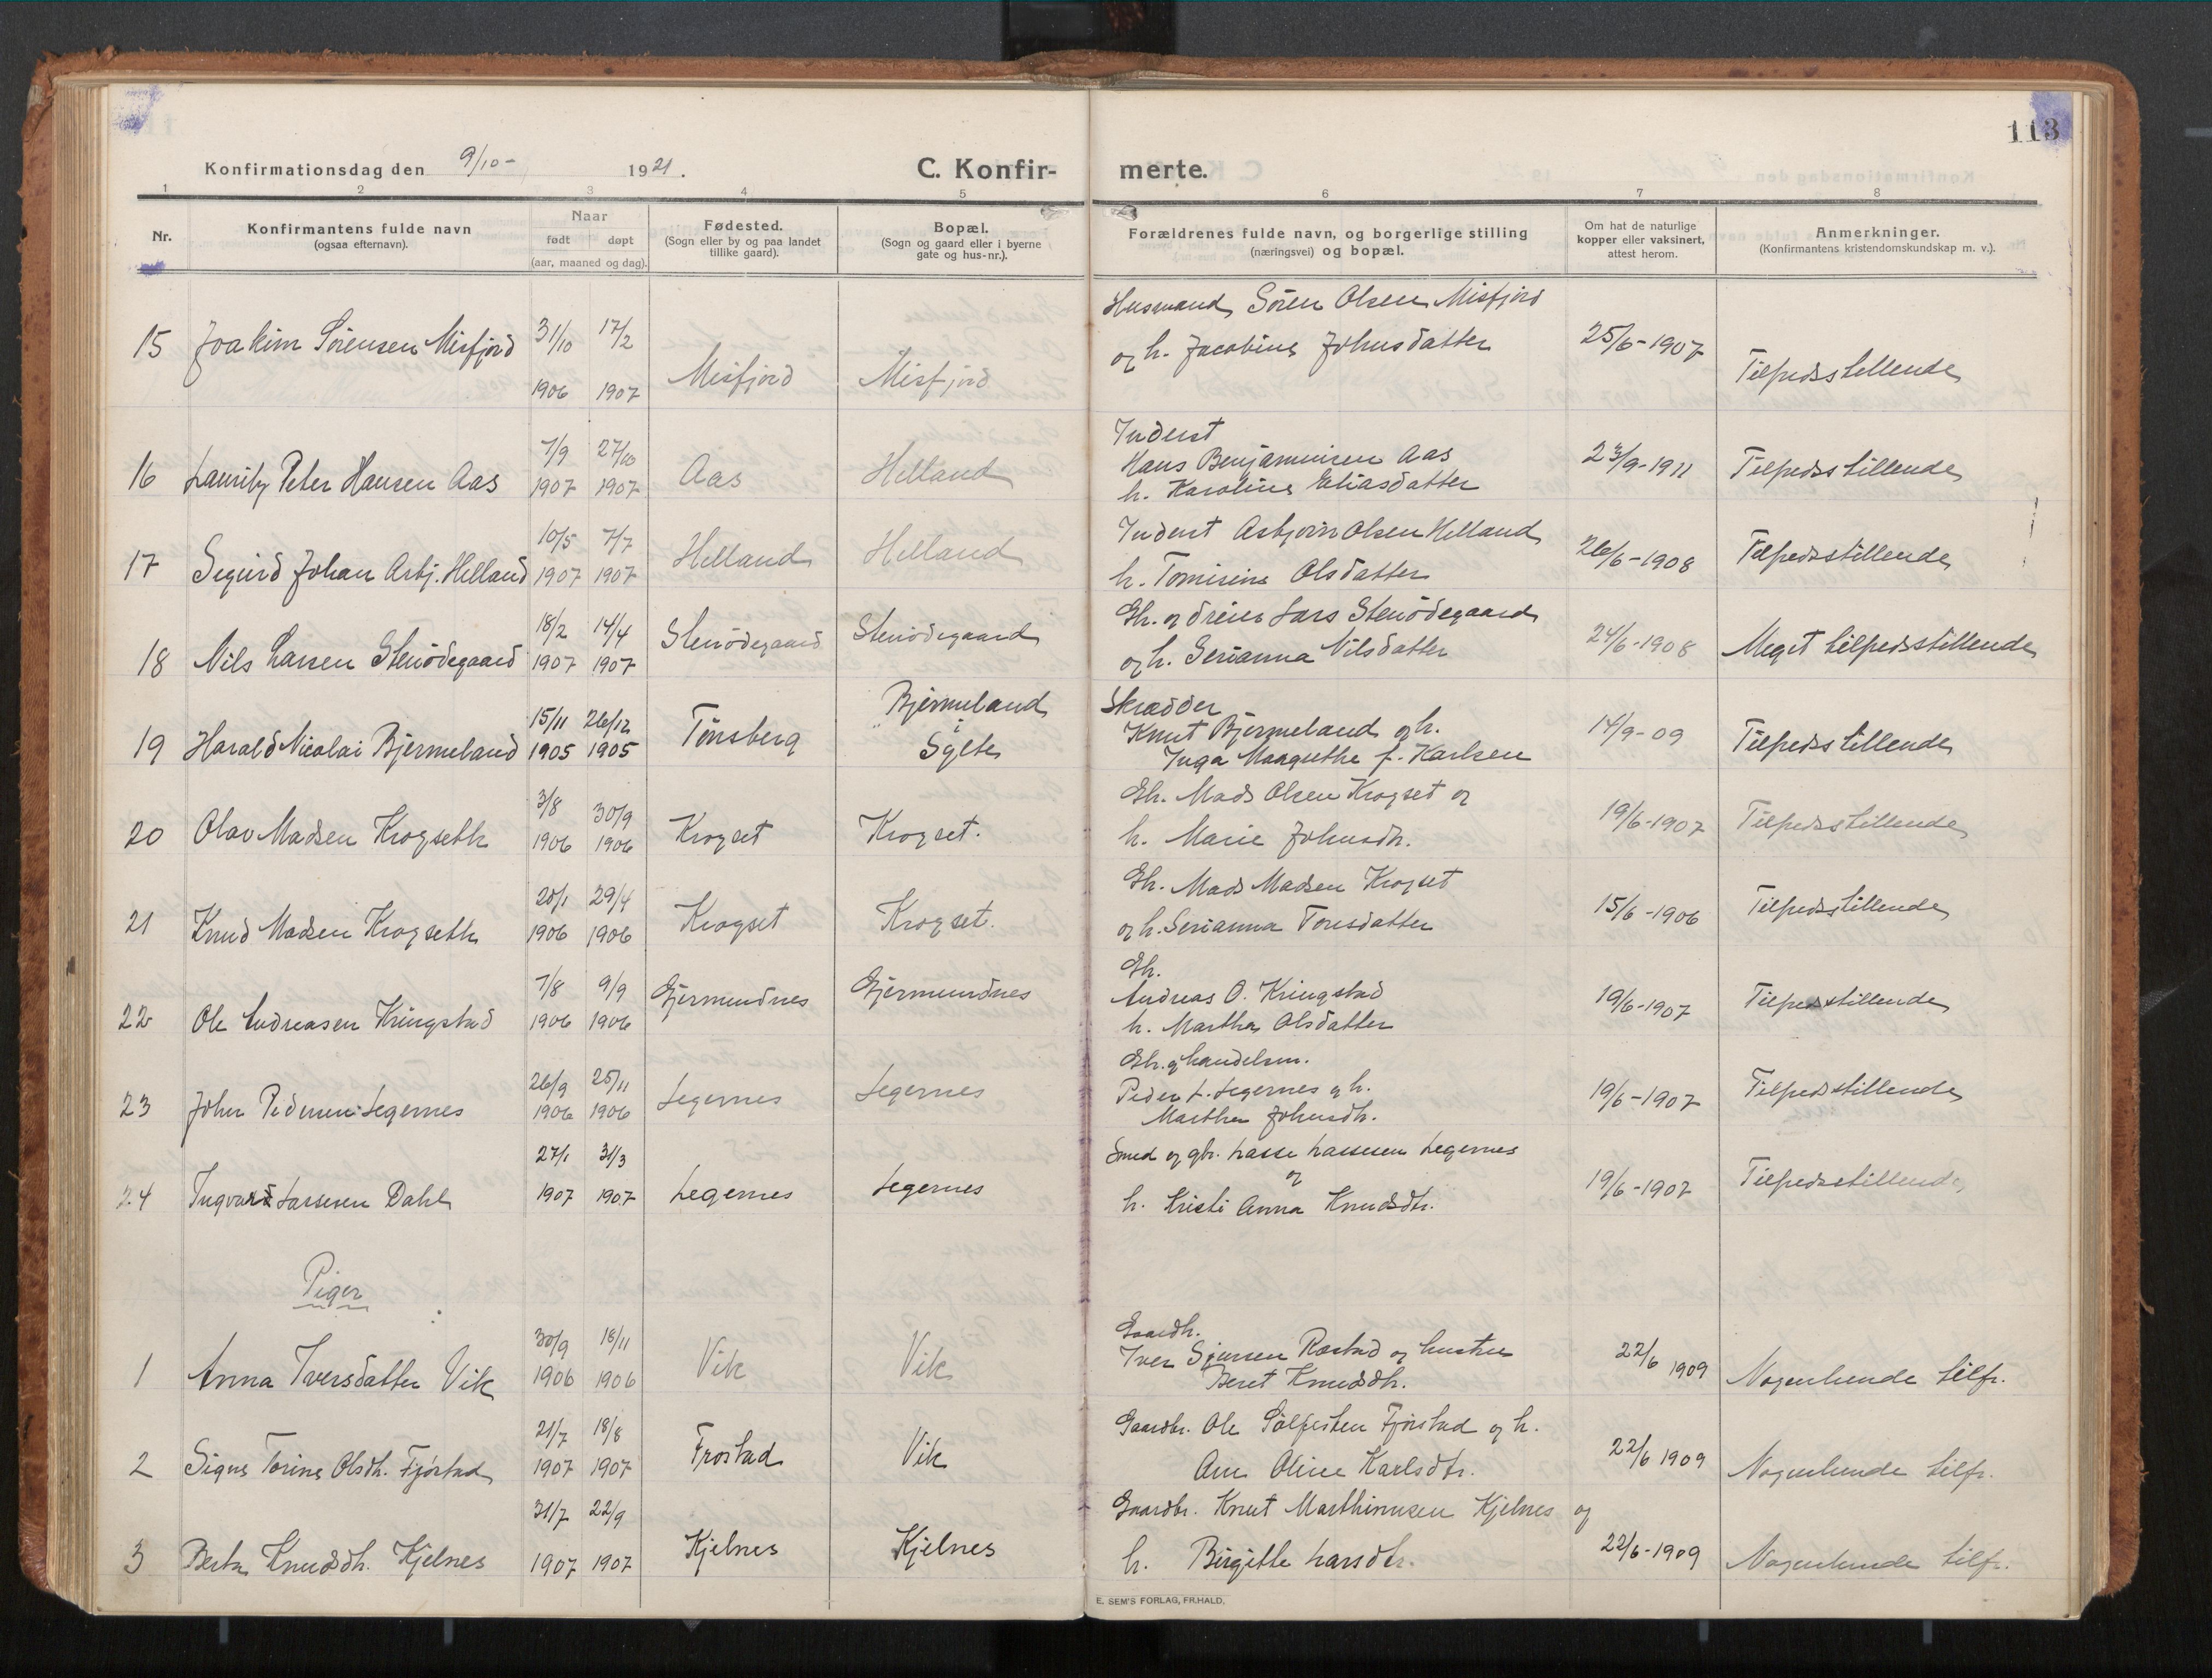 113
Konfirmationsdag den 9/10- 1921.
C. Konfir- merte.
1 2 3 4 5 6 7 8
Nr.
Konfirmantens fulde navn
(ogsaa efternavn).
Naar
født døpt
(aar, maaned og dag).
Fødested.
(Sogn eller by og paa landet
tillike gaard).
Bopæl.
(Sogn og gaard eller i byerne
gate og hus-nr.).
Forældrenes fulde navn, og borgerlige stilling
(næringsvei) og bopæl.
Om hat de naturlige
kopper eller vaksinert,
attest herom.
Anmerkninger.
(Konfirmantens kristendomskundskap m. v.).
Husmand Sören Olsen Misfjord
15 Joakim Sörensen Misfjord 31/10 17/2 og h. Jacobine Johnsdatter 25/6-1907
1906 1907 Misfjord Misfjord Tilfredsstillende
Inderst
7/9 27/10 Hans Benjaminsen Aas
16 Lauritz Peter Hansen Aas 1907 1907 Aas Helland h. Karoline Eliasdatter 23/9-1911 Tilfredsstillende
10/5 7/7 Inderst Asbjörn Olsen Helland
17 Sigurd Johan Asbj. Helland 1907 1907 Helland Helland h. Tomine Olsdatter 26/6-1908 Tilfredsstillende
18/2 14/4 Gbr. og dreier Lars Stenödegaard
18 Nils Larsen Stenödegaard 1907 1907 Stenödegaard Stenödegaard og h. Serianna Nilsdatter 24/6-1908 Meget tilfredsstillende
Bjermeland Skrædder
15/11 26/12 Knut Bjermeland og h.
19 Harald Nicolai Bjermeland 1905 1905 Tönsberg Sylte Inga Margrethe f. Karlsen 14/9-09 Tilfredsstillende
3/8 30/9 Gbr. Mads Olsen Krogset og
20 Olav Madsen Krogseth 1906 1906 Krogset Krogset. h. Marie Johnsdtr. 19/6-1907 Tilfredsstillende
29/4 Gbr. Mads Madsen Krogset
21 Knud Madsen Krogseth 1906 1906 Krogset Krogset. og h. Serianna Toresdatter 15/6-1906 Tilfredsstillende
Gbr.
7/8 9/9 Andreas O. Kringstad
22 Ole Andreasen Kringstad 1906 1906 Gjermundnes Gjermundnes h. Martha Olsdatter 19/6-1907 Tilfredsstillende
Gbr. og handelsm.
26/9 25/11 Peder L. Legernes og h.
23 John Pedersen Legernes 1906 1906 Legernes Legernes Martha Johnsdtr. 19/6-1907 Tilfredsstillende
27/1 31/3 Smed og gbr. Lasse Lassesen Legernes
og
24 Ingvard Lassesen Dahl 1907 1907 Legernes Legernes h. Kristi Anna Knudsdtr. 19/6-1907 Tilfredsstillende
Piger
Gaardbr.
30/9 18/11 Iver Sjursen Rastad og hustru
1 Anna Iversdatter Vik 1906 1906 Vik Vik Beret Knudsdtr. 22/6 1909 Nogenlunde tilfr.
21/7 18/8 Gaardbr. Ole Fjörstad og h.
2 Signe Torine Olsdtr. Fjörstad 1907 1907 Frostad Vik Ane Oline Karlsdtr. 22/6 1909 Nogenlunde tilfr.
31/7 22/9 Gaardbr. Knut Marthinusen Kjelnes og
3 Knudsdtr. Kjelnes 1907 1907 Kjelnes Kjelnes h. Birgitte Larsdtr. 22/6-1909 Nogenlunde tilfr.
E. SEM'S FORLAG, FR.HALD.